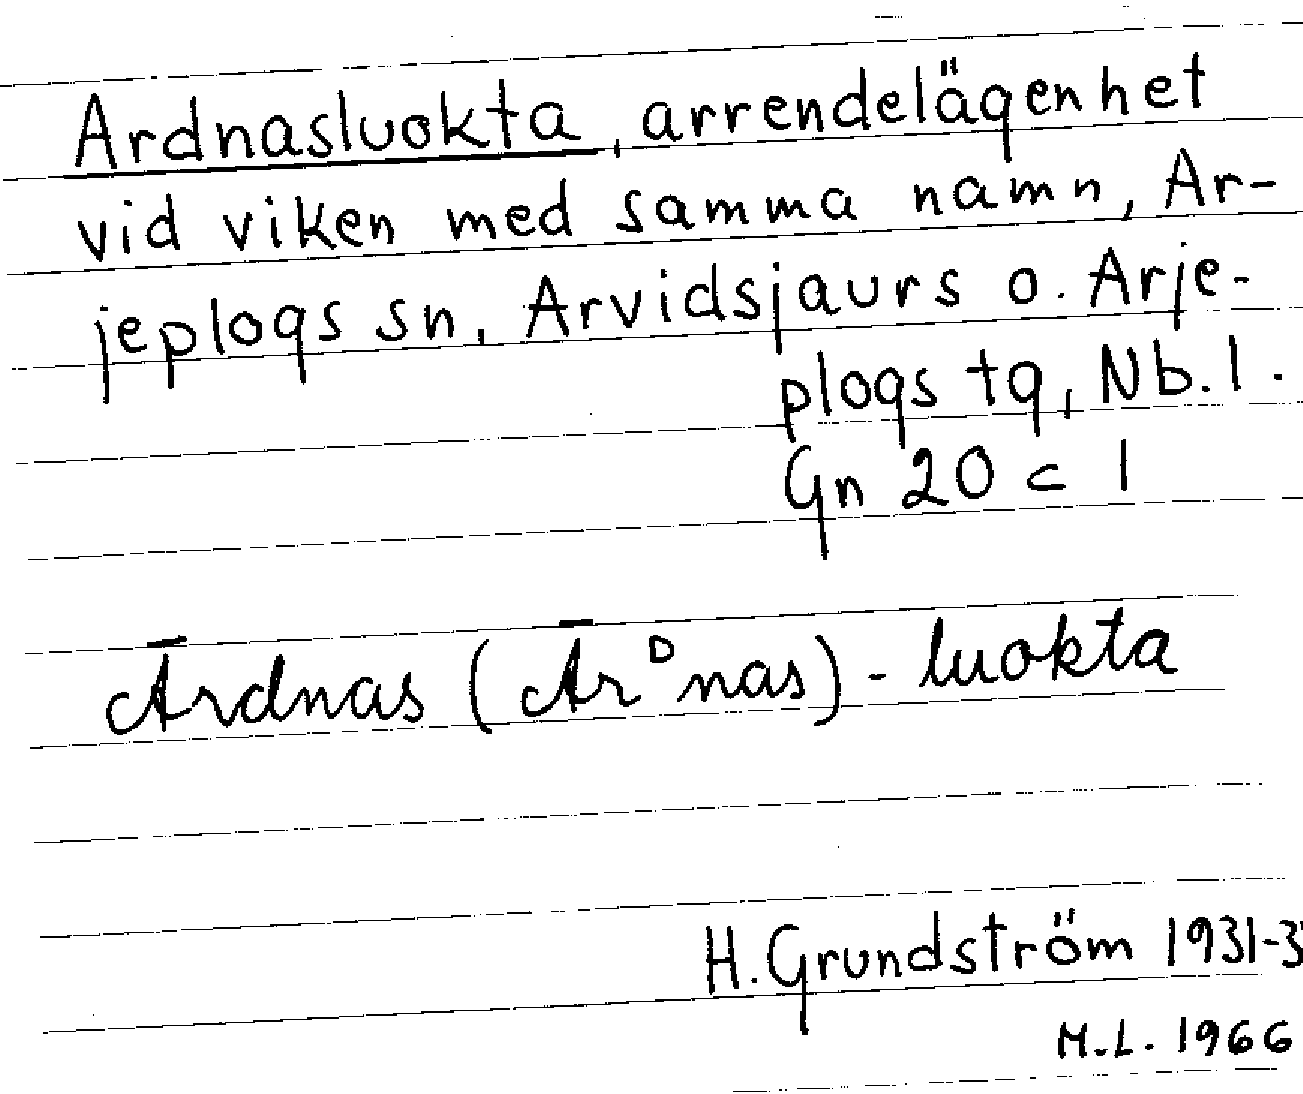 Ardnasluokta, arrendelägenhet
vid viken med samma namn, Ar-
jeplogs sn, Arvidsjaurs o. Arje-
plogs tg, Nb. l.
Gn 20 c 1
Ārdnas (Ārᴰnas) - luokta
H. Grundström 1931-3
M.L. 1966